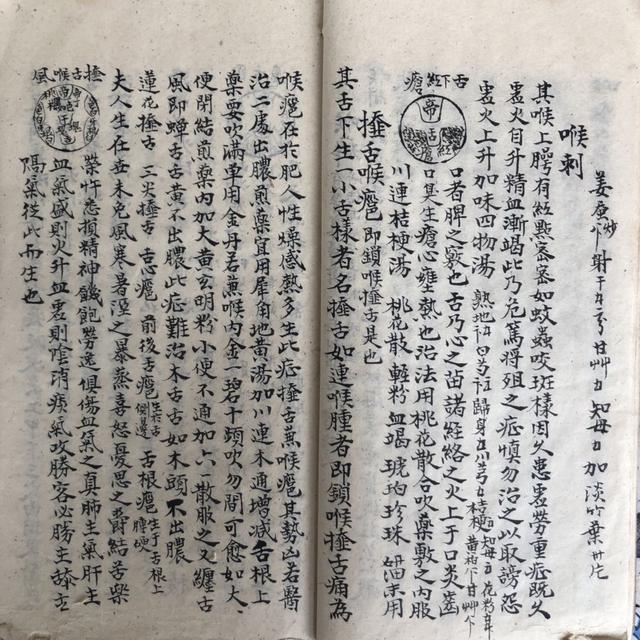 姜蚕炒 卞 射干 五分 甘艸 刀 知母 刀 加淡竹葉 卅片
喉刺
其喉上腭有紅點密密如蚊蟲咬斑樣因久患虛勞重症既久
虛火自升精血漸竭此乃危篤將殂之症慎勿治之以取謗怨
虛火上升加味四物湯 熟地 白芍 歸身 川芎 桔梗 知母 花粉 黄柏 甘艸
口者脾之竅也舌乃心之苗諸經絡之火上于口炎齒
口臭生瘡心壅熱也治法用桃花散合吹藥敷之内服
川連桔梗湯 桃花散 輕粉 血竭 琥珀 珍珠 細末用
舌下紅瘡
帝舌
捶舌喉瘪即鎖喉捶舌是也
其舌下生一小舌樣者名捶舌如連喉腫者即鎖喉捶舌痛為
喉瘪在於肥人性燥感熱多生此症捶舌蕪喉瘪其勢凶若醫
治二處出膿煎藥宜用犀角地黄湯加川連木通增减舌根上
藥要吹滿罩用金丹若蕪喉内金一碧十頻吹勿間可愈如大
便閉結煎藥内加大黄玄明粉小便不通加六一散服之又纏舌
風即蟬舌舌黄不出膿此症難治木舌舌如木頭不出膿
蓮花捶舌 三尖捶舌 舌心瘪 前後舌瘪 生於舌側邊 舌根瘪 生于舌根上腫硬
夫人生在世未免風寒暑湿之暴蒸喜怒憂思之欝結苦樂
捶舌喉風
榮竹悉損精神饑飽勞逸俱傷血氣之真肺主氣肝主
血氣盛則火升血虛則陰消痰氣攻勝客必勝主舔主
隔氣從此而生也